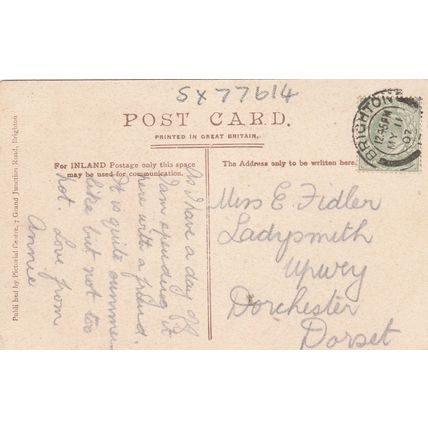 SX77614
POST CARD.
PRINTED IN GREAT BRITAIN.
For INLAND Postage only this space
may be used for communication.
The Address only to be written here.
BRIGHTON
12.45PM
MY 11
07
Published by Pictorial Centre, 7 Grand Junction Road, Brighton
As I have a day off
I am spending it
here with a friend.
It is quite summer
like but not too
hot. Love from
Annie
Miss E. Fidler
Ladysmith
Upwey
Dorchester
Dorset